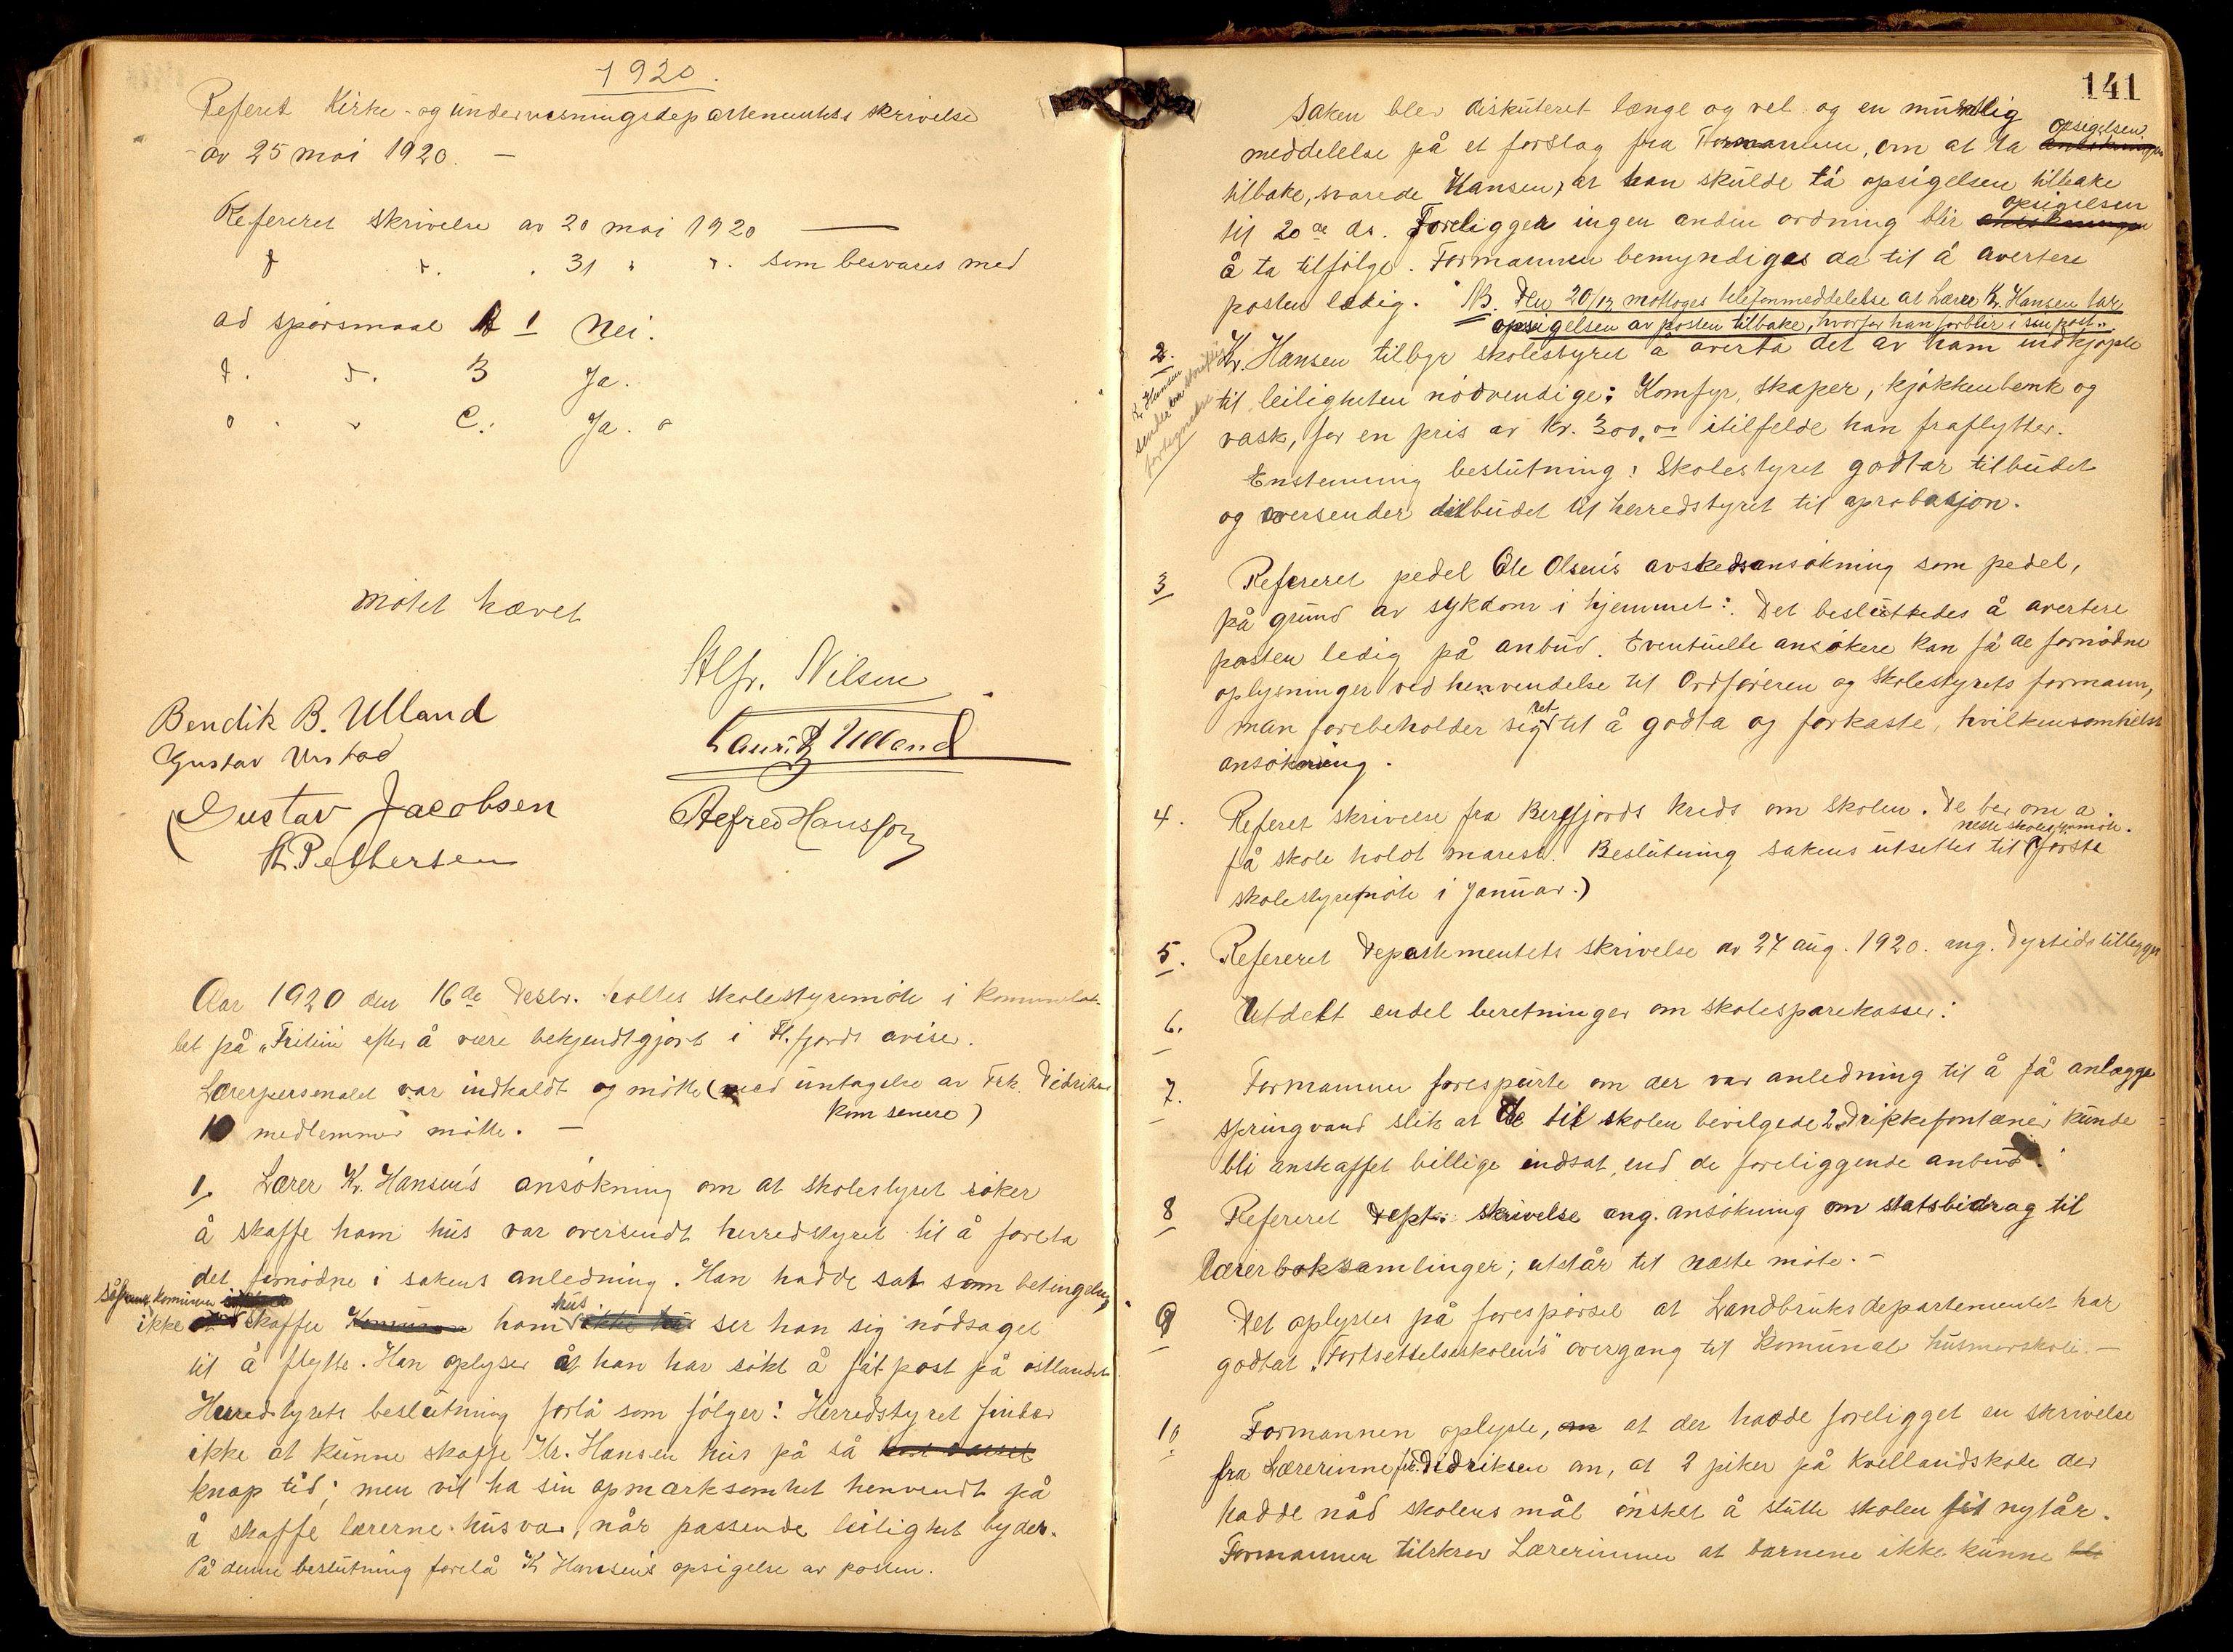 1920.
Referet Kirke- og undervisningsdepartementets skrivelse
av 25 mai 1920. —
Refereret skrivelse av 20 mai 1920 —
d d. . 31 " ". som besvares med
ad spørsmaal A 1 Nei.
d. d. B Ja.
" . " C. Ja.
Møtet hævet
Alfr. Nilsen
Bendik B. Ulland
Lauritz Ulland
Gustav Urstad
Gustav Jacobsen
Alfred Hansson
Pettersen
Aar 1920 den 16de Desbr. holtes skolestyremøte i kommuneloka-
let på "Fritun" efter å være bekjendtgjort i Fl.fjords aviser.
Lærerpersonalet var indkaldt og møtte (med untagelse av Frk. Didriksen
kom senere)
10 medlemmer møtte. —
1. Lærer Kr. Hansen's ansøkning om at skolestyret søker
å skaffe ham hus var oversendt herredstyret til å foreta
det fornødne i sakens anledning. Han hadde sat som betingelse,
såfremt komunen
ikke skaffer Komunen ham hus ikke hus ser han sig nødsaget
til å flytte. Han oplyser at han har søkt å få post på østlandet.
Herredstyrets beslutning forlå som følger: Herredstyret finder
ikke at kunne skaffe Kr. Hansen hus på så
knap tid; men vil ha sin opmærksomhet henvendt på
å skaffe lærerne husvær, når passende leilighet byder.
På denne beslutning forelå K Hansen's opsigelse av posten.
141
Saken blev diskuteret længe og vel og en muntlig
opsigelsen
meddelelse på et forslag fra Formannen, om at ta ansøkningen
tilbake, svarede Hansen, at han skulde ta opsigelsen tilbake
opsigelsen
til 20de ds. Foreligger ingen anden ordning blir ansøkningen
å ta tilfølge. Formannen bemyndiges da til å avertere
posten ledig. NB. Den 20/12 mottoges telefonmeddelelse at Lærer Kr. Hansen tar
opsigelsen av posten tilbake, hvorfor han forblir i sin post.
2. Kr. Hansen tilbyr skolestyret å overta det av ham indkjøpte
Kr. Hansen
sender
fortegnelse
til leiligheten nødvendige: Komfyr, skaper, kjøkkenbenk og
vask, for en pris av kr. 300,00 itilfelde han fraflytter.
Enstemmig beslutning: Skolestyret godtar tilbudet
og oversender tilbudet til herredstyret til aprobasjon.
3 Refereret pedel Ole Olsen's avskedsansøkning som pedel,
på grund av sykdom i hjemmet: Det besluttedes å avertere
posten ledig på anbud. Eventuelle ansøkere kan få de fornødne
oplysninger ved henvendelse til Ordføreren og Skolestyrets formann,
man forebeholder sig ret til å godta og forkaste, hvilkensomhelst
ansøkning.
4. Referet skrivelse fra Bergfjords kreds om skolen. De ber om å
neste skolestyremøte.
få skole holdt marest. Beslutning sakens utsettes til (første
skolestyremøte i Januar.)
5. Refereret Departementets skrivelse av 27 aug. 1920. ang. Dyrtidstillegget
6. Utdelt endel beretninger om skolesparekasser:
7. Formannen forespurte om der var anledning til å få anlægge
springvand slik at de til skolen bevilgede 2 "Drikkefontæner" kunde
bli anskaffet billige indsat, end de foreliggende anbud.
8 Refereret Depts. skrivelse ang. ansøkning om statsbidrag til
lærerboksamlinger; utstår til næste møte. —
9 Det oplystes på forespørsel at Landbruksdepartementet har
godtat "Fortsettelseskolen's" overgang til komunal husmorskole. —
10 Formannen oplyste, om at der hadde foreligget en skrivelse
fra Lærerinne frk. Didriksen om, at 2 piker på Kvellandskole der
hadde nåd skolens mål ønsket å slutte skolen fra nytår.
Formannen tilskrev Lærerinnen at barnene ikke kunne bli